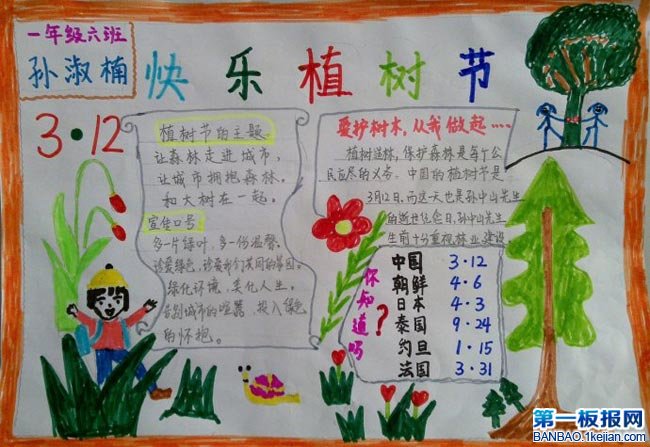 一年级六班
孙淑楠
快乐植树节
3·12
植树节的主题。
让森林走进城市，
让城市拥抱森林。
和大树在一起。
宣传口号
多一片绿叶，多一份温馨。
珍爱绿色，珍爱我们共同的家园。
绿化环境，美化人生。
告别城市的喧嚣，投入绿色
的怀抱。
爱护树木，从我做起……
植树造林，保护森林是每个公
民应尽的义务。中国的植树节是
3月12日，而这天也是孙中山先生
的逝世纪念日，孙中山先生
生前十分重视林业建设。
你知道吗？
中国 3·12
朝鲜 4·6
日本 4·3
泰国 9·24
约旦 1·15
法国 3·31
第一板报网
BANBAO.1kejian.com